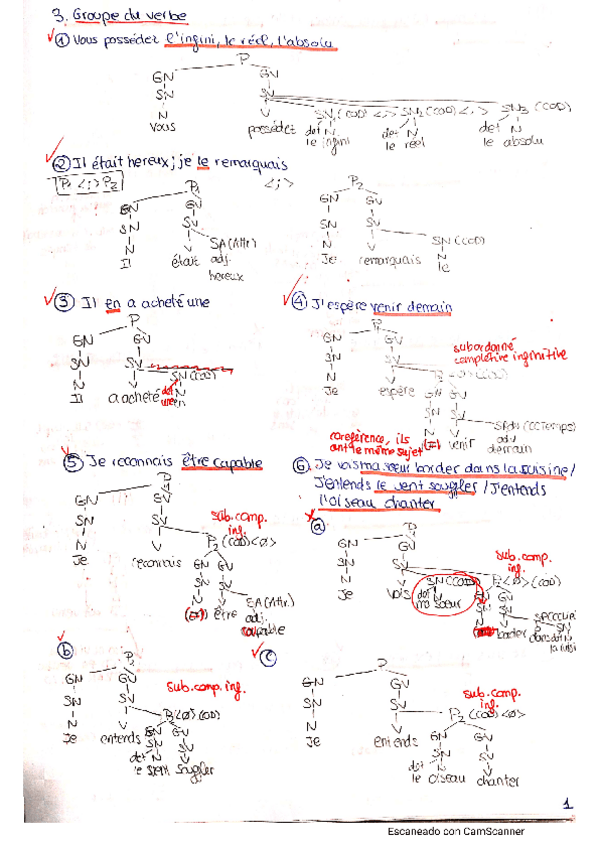 3. Groupe du verbe
① Vous possédez l'infini, le réel, l'absolu
P
GN GV
SN SV
N V SN1 (COD) <,> SN2 (COD) <,> SN3 (COD)
Vous possédez det N det N det N
le infini le réel le absolu
② Il était hereux; je le remarquais
P1 <;> P2
P1 <;> P2
GN GV GN GV
SN SV SN SV
N V SA (Attr) N V SN (COD)
Il était adj. Je remarquais N
hereux le
③ Il en a acheté une
P
GN GV
SN SV
N V SN (COD)
Il a acheté det N
une en
④ J'espère venir demain
P
GN GV
SN SV
N V
Je espère
subordonné
complétive infinitive
GN GV
SN SV
N V
venir adv
demain
coréférence, ils
ont le même sujet
⑤ Je reconnais être capable
GN GV
SN SV
N V
Je reconnais
sub. comp.
inf.
P2 (COD) <ø>
GN GV
SN SV
N V SA (Attr.)
être adj.
capable
⑥ Je vois ma sœur border dans la cuisine /
J'entends le vent souffler / J'entends
l'oiseau chanter
ⓐ
GN GV
SN SV
N V SN (COD) P2 <ø> (COD)
Je vois det N
ma sœur
sub. comp.
inf.
GN GV
SN SV
N V
border
ⓑ
P
GN GV
SN SV
N V
Je entends
sub. comp. inf.
P2 <ø> (COD)
GN GV
SN SV
det N V
le souffler
ⓒ
P
GN GV
SN SV
N V
Je entends
sub. comp.
inf.
P2 (COD) <ø>
GN GV
SN SV
det N V
le oiseau chanter
1
Escaneado con CamScanner